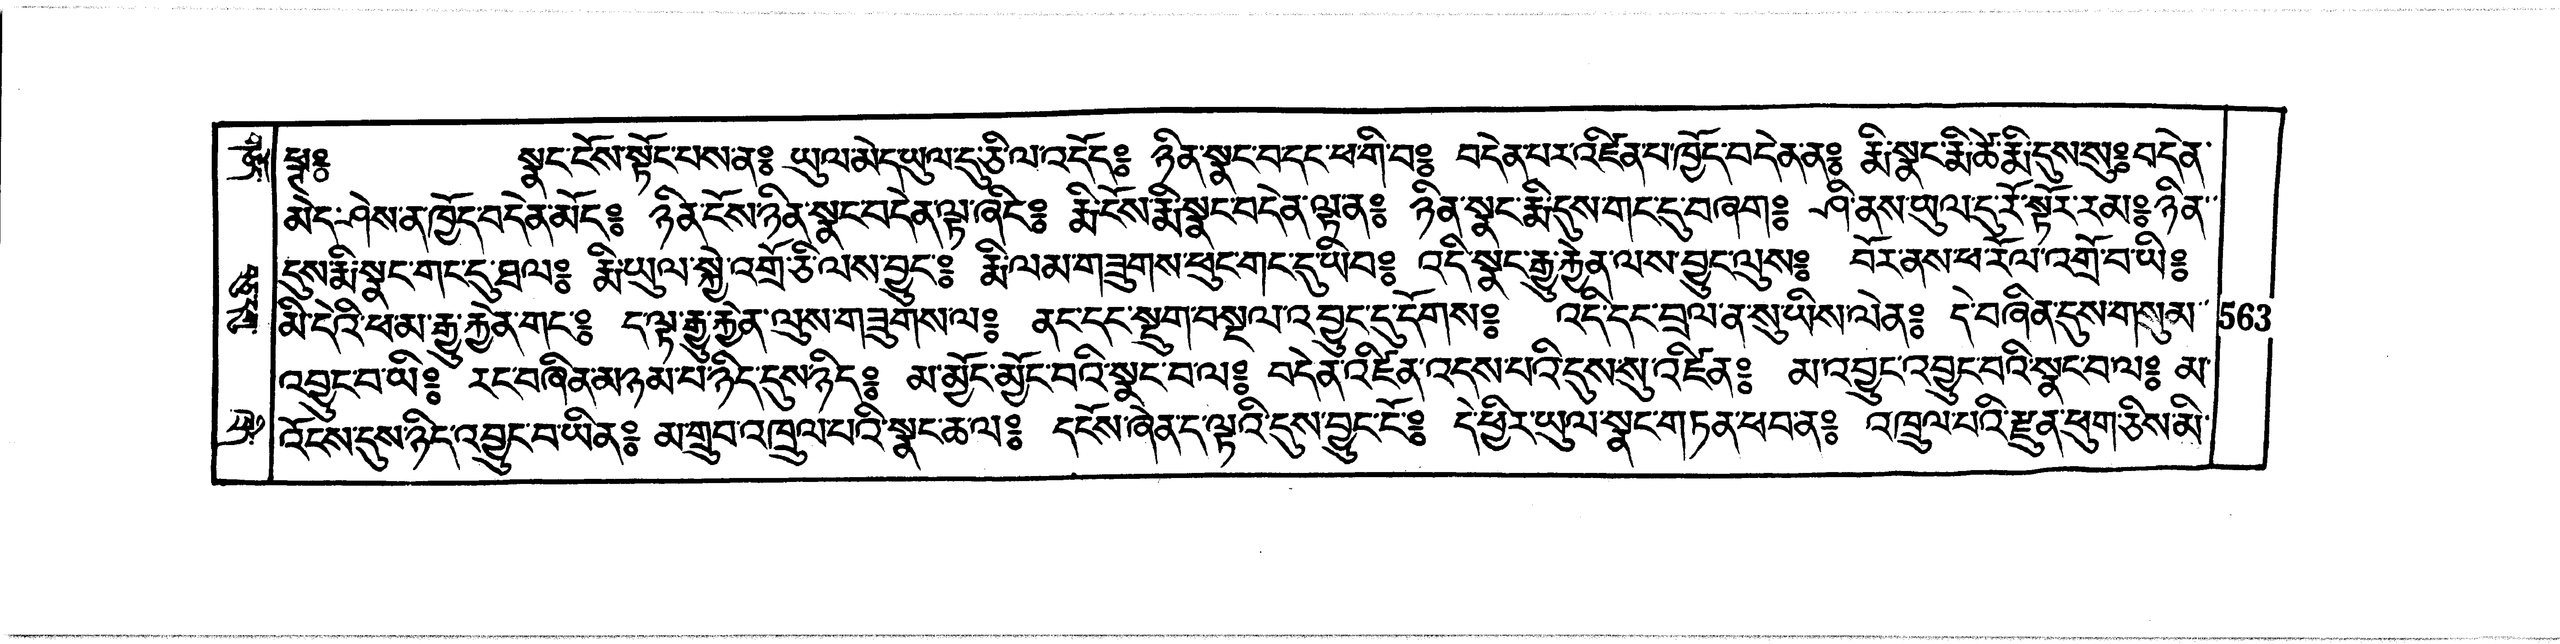 ཕྱ༔ སྣང་ངོས་སྟོང་པས་ན༔ ཡུལ་མེད་ཡུལ་དུ་ཅི་ལ་འདོད༔ ཉིན་སྣང་བདང་ཕ་གི་བ༔ བདེན་པར་འཛིན་པ་ཁྱོད་བདེན་ན༔ རྨི་སྣང་རྨི་ཚེ་རྨི་དུས་སུ༔ བདེན་
མེད་ཤེས་ན་ཁྱོད་བདེན་མོད༔ ཉིན་ངོས་ཉིན་སྣང་བདེན་ལྟ་ཞིང༔ རྨི་ངོས་རྨི་སྣང་བདེན་ལྟ་ན༔ ཉིན་སྣང་རྨི་དུས་གང་དུ་བཞག༔ ཤི་ནས་ཡུལ་དུ་རོ་སྟོར་རམ༔ ཉིན་
དུས་རྨི་སྣང་གང་དུ་ཐལ༔ རྨི་ཡུལ་སྐྱེ་འགྲོ་ཅི་ལས་བྱུང༔ རྨི་ལམ་གཟུགས་ཕུང་གང་དུ་ཡིབ༔ འདི་སྣང་རྒྱུ་རྐྱེན་ལས་བྱུང་ལུས༔ བོར་ནས་ཕ་རོལ་འགྲོ་བ་ཡི༔
མི་དེའི་ཕ་མ་རྒྱུ་རྐྱེན་གང༔ ད་ལྟ་རྒྱུ་རྐྱེན་ལུས་གཟུགས་ལ༔ ནང་དང་སྡུག་བསྔལ་འབྱུང་དུ་དོགས༔ འདི་དང་བྲལ་ན་སུ་ཡིས་ལེན༔ དེ་བཞིན་དུས་གསུམ་ 563
འབྱུང་བ་ཡི༔ རང་བཞིན་མཉམ་པ་ཉིད་དུས་ཉིད༔ མ་མྱོང་མྱོང་བའི་སྣང་བ་ལ༔ བདེན་འཛིན་འདས་པའི་དུས་སུ་འཛིན༔ མ་འབྱུང་འབྱུང་བའི་སྣང་བ་ལ༔ མ་
འོངས་དུས་ཉིད་འབྱུང་བ་ཡིན༔ མ་གྲུབ་འཁྲུལ་པའི་སྣང་ཆ་ལ༔ དངོས་ཞེན་ད་ལྟའི་དུས་བྱུང་ངོ༔ དེ་ཕྱིར་ཡུལ་སྣང་གཏན་ཕབ་ན༔ འཁྲུལ་པའི་རྫུན་ཕུག་ཅིས་མི་